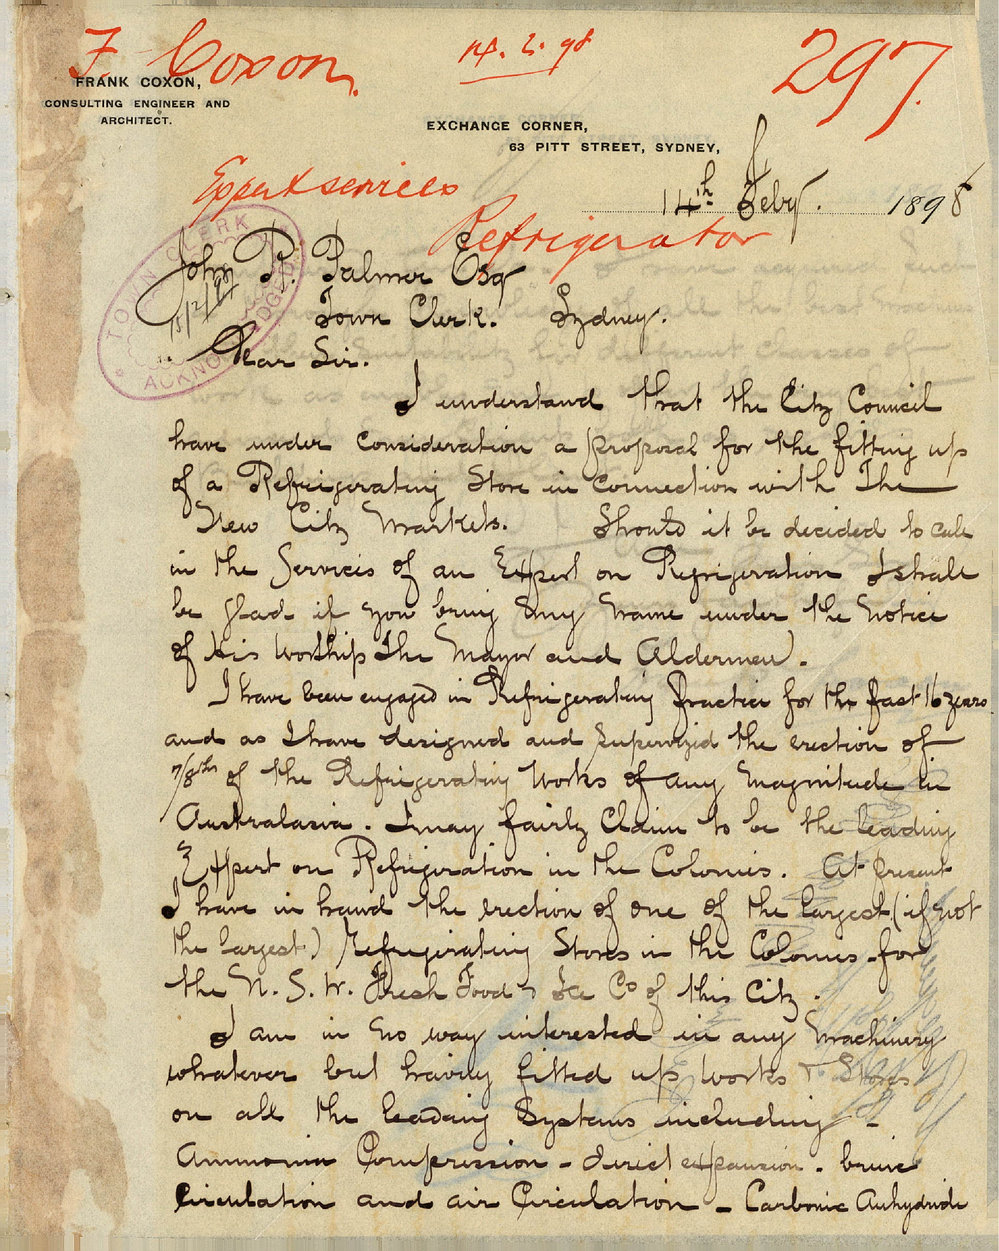 F Coxon.
14. 2. 98
297.
FRANK COXON,
CONSULTING ENGINEER AND
ARCHITECT.
EXCHANGE CORNER,
63 PITT STREET, SYDNEY,
Expert services
Refrigerator
14th Feby. 1898
TOWN CLERK
ACKNOWLEDGED
15/2/98
John P. Palmer Esq
Town Clerk. Sydney.
Dear Sir.
I understand that the City Council
have under consideration a proposal for the fitting up
of a Refrigerating Store in connection with The
New City Markets. Should it be decided to call
in the Services of an Expert on Refrigeration I shall
be glad if you bring my name under the notice
of His Worship The Mayor and Aldermen.
I have been engaged in Refrigerating Practice for the past 16 years
and as I have designed and supervised the erection of
7/8ths of the Refrigerating Works of any magnitude in
Australasia. I may fairly Claim to be the leading
Expert on Refrigeration in the Colonies. At present
I have in hand the erection of one of the largest (if not
the largest) Refrigerating Stores in the Colonies for
the N. S. W. Fresh Food & Ice Co of this City.
I am in no way interested in any Machinery
whatever but having fitted up Works & Stores
on all the leading Systems including -
Ammonia Compression - direct expansion - brine
Circulation and air Circulation - Carbonic Anhydride